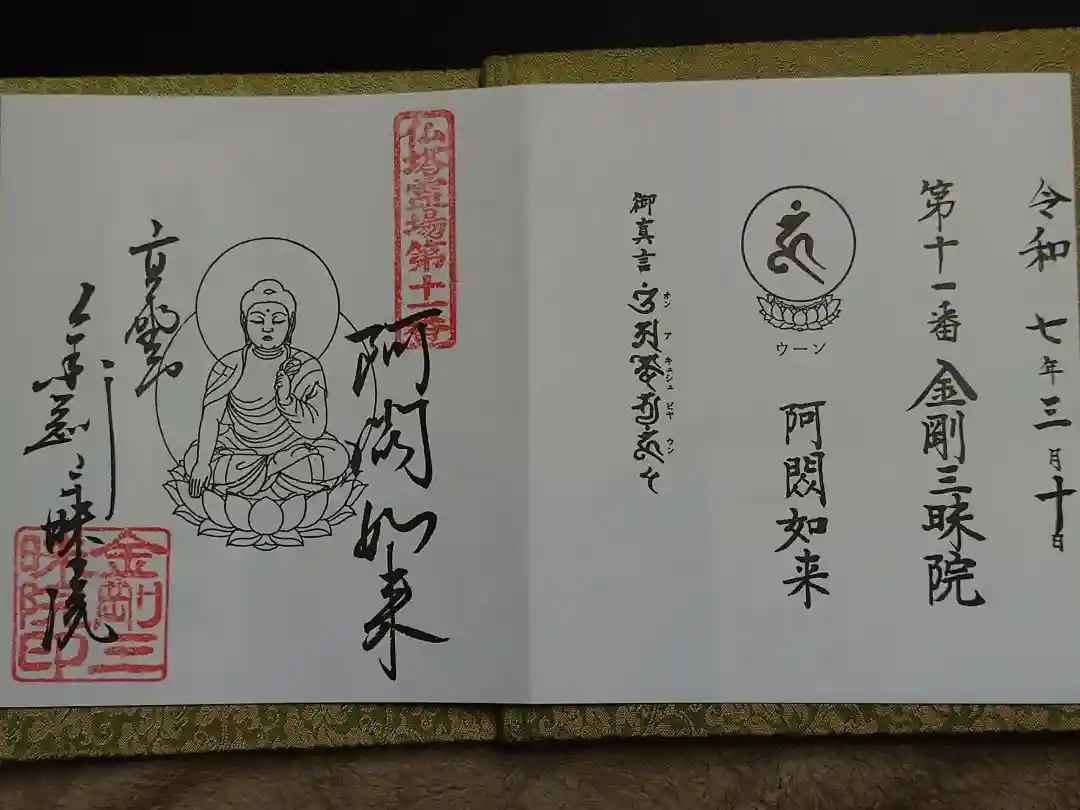 令和 七年 三月 十日
第十一番 金剛三昧院
阿閦如来
ウーン
御真言
オン ア キュシュ ビヤ ウン
仏塔霊場第十一番
阿閦如来
高野山
金剛三昧院
金剛三昧院印